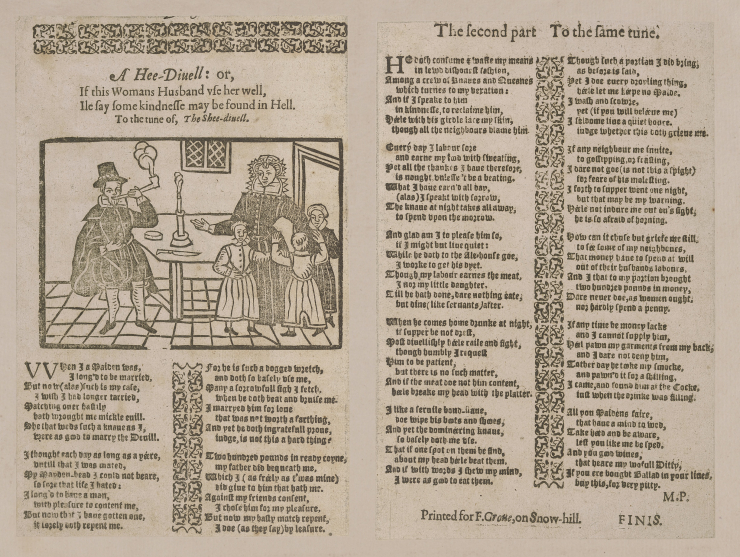 A Hee-Diuell: or,
If this Womans Husband vse her well,
Ile say some kindnesse may be found in Hell.
To the tune of, The Shee-diuell.
WHen I a Maiden was,
I long'd to be married,
But now (alas) such is my case,
I wish I had longer tarried,
Matching ouer hastily
hath wrought me mickle euill.
She that weds such a knaue as I,
were as good to marry the Deuill.
I thought each day as long as a yéere,
vntill that I was mated,
My Maiden-head I could not beare,
so sore that life I hated:
I long'd to haue a man,
with pleasure to content me,
But now that I haue gotten one,
it sorely doth repent me.
For he is such a dogged wretch,
and doth so basely vse me,
Many a sorrowfull sigh I fetch,
when he doth beat and bruise me.
I marryed him for loue
that was not worth a farthing,
And yet he doth ingratefull proue,
iudge, is not this a hard thing?
Two hundred pounds in ready coyne,
my father did bequeath me,
Which I (as fréely as t'was mine)
did giue to him that hath me.
Against my friends consent,
I chose him for my pleasure,
But now my hasty match repent,
I doe (as they say) by leasure.
The second part To the same tune.
HE doth consume & waste my means
in lewd dishonest fashion,
Among a crew of Knaues and Queanes
which turnes to my vexation:
And if I speake to him
in kindnesse, to reclaime him,
Héele with his girdle lace my skin,
though all the neighbours blame him.
Euery day I labour sore
and earne my food with sweating,
Yet all the thankes I haue therefore,
is nought vnlesse 't be a beating.
What I haue earn'd all day,
(alas) I speake it with sorrow,
The knaue at night takes all away,
to spend vpon the morrow.
And glad am I to please him so,
if I might but liue quiet:
While he doth to the Ale-house goe,
I worke to get his dyet.
Though my labour earnes the meat,
I nor my little daughter,
Till he hath done, dare nothing eate,
but dine, like seruants, after.
When he comes home drunke at night,
if supper be not drest,
Most diuellishly héele raile and fight,
though humbly I request
Him to be patient,
but there is no such matter,
And if the meat doe not him content,
héele breake my head with the platter.
I like a seruile bond-slaue,
doe wipe his boots and shoes,
And yet the domineering knaue,
so basely doth me vse.
That if one spot on them he find,
about my head héele beat them,
And if with words I shew my mind,
I were as good to eat them.
Though such a portion I did bring,
as before is said,
Yet I doe euery droyling thing,
héele let me kéepe no Maide.
I wash and scowre,
yet (if you will beléeue me)
I seldome liue a quiet houre,
iudge whether this doth grieue me.
If any neighbour me inuite,
to gossipping, or feasting,
I dare not goe (is not this a spight)
for feare of his molesting.
I forth to supper went one night,
but that may be my warning,
Héele not indure me out on's sight,
he is so afraid of horning.
How can it chuse but grieue me still,
to sée some of my neighbours,
That money haue to spend at will
out of their husbands labours,
And I that to my portion brought
two hundred pounds in money,
Dare neuer doe, as women ought,
nor hardly spend a penny.
If any time he money lacke
and I cannot supply him,
Héel pawn my garments from my back,
and I dare not deny him,
Tother day he tooke my smocke,
and pawn'd it for a shilling,
I came, and found him at the Cocke,
iust when the drinke was filling.
All you Maidens faire,
that haue a mind to wed,
Take héed and be aware,
lest you like me be sped.
And you good wiues,
that heare my wofull Ditty,
If you ere bought Ballad in your liues,
buy this, for very pitty.
M.P.
Printed for F. Groue, on Snow-hill.
FINIS.